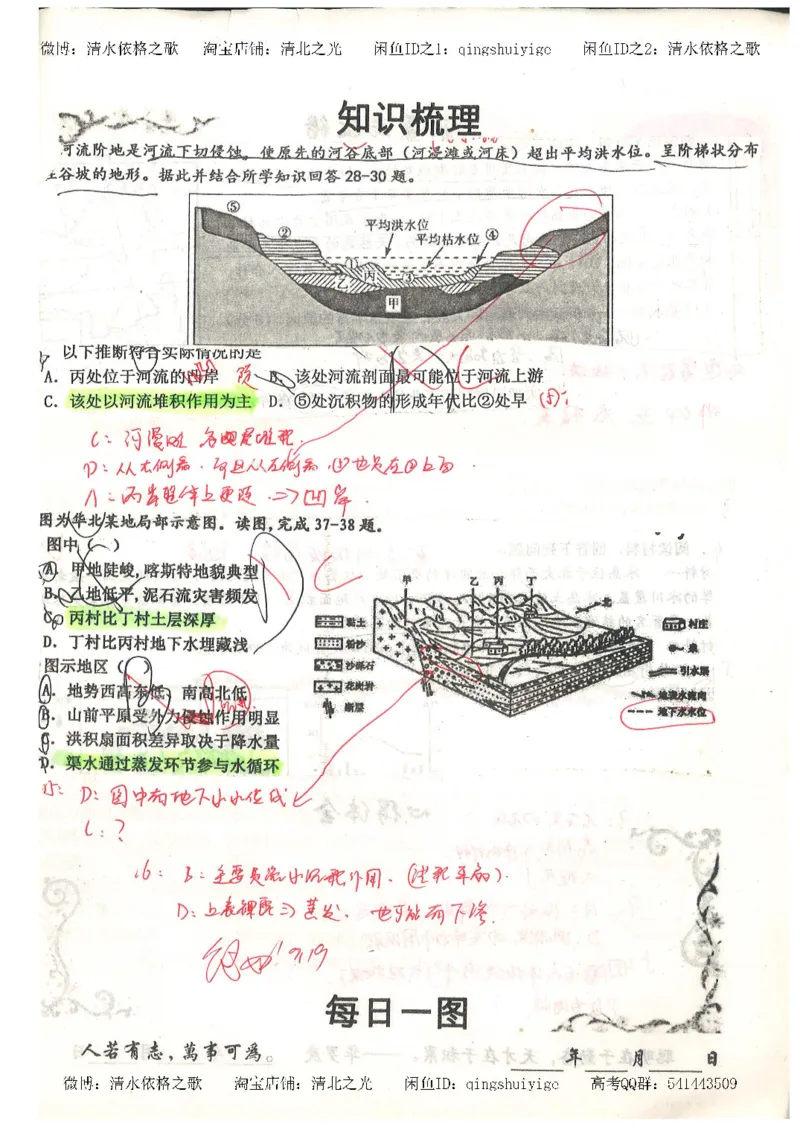 微博：清水依格之歌 淘宝店铺：清北之光 闲鱼ID之1：qingshuiyige 闲鱼ID之2：清水依格之歌
知识梳理
河流阶地是河流下切侵蚀，使原先的河谷底部（河漫滩或河床）超出平均洪水位。呈阶梯状分布
谷坡的地形。据此并结合所学知识回答28-30题。
⑤
②
平均洪水位
平均枯水位
④
①
丙
乙
③
甲
以下推断符合实际情况的是
A. 丙处位于河流的 岸 B. 该处河流剖面最可能位于河流上游
C. 该处以河流堆积作用为主 D. ⑤处沉积物的形成年代比②处早
C：河漫滩
A：丙 ⇒凹岸.
图为华北某地局部示意图。读图,完成37-38题。
图中（ ）
A. 甲地陡峻,喀斯特地貌典型
B. 乙地低平,泥石流灾害频发
C. 丙村比丁村土层深厚
D. 丁村比丙村地下水埋藏浅
甲 乙 丙 丁
北
黏土
粉沙
沙砾石
花岗岩
断层
村庄
泉
引水渠
地表水流向
地下水水位
图示地区（ ）
A. 地势西高东低，南高北低
B. 山前平原受外力侵蚀作用明显
C. 洪积扇面积差异取决于降水量
D. 渠水通过蒸发环节参与水循环
D：图中有地下水水位线
C：？
16： B：主要是流水沉积作用.
D： ⇒蒸发. 也可能有下渗.
9.19
每日一图
人若有志，萬事可為。
年 月 日
微博：清水依格之歌 淘宝店铺：清北之光 闲鱼ID：qingshuiyige 高考QQ群：541443509